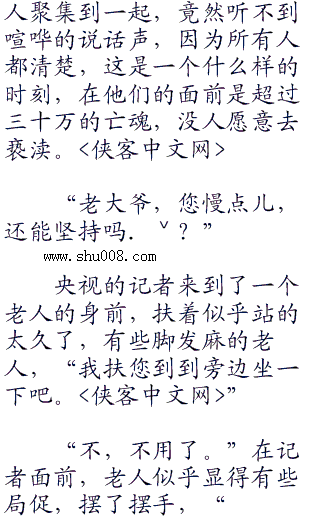 人聚集到一起，竟然听不到
喧哗的说话声，因为所有人
都清楚，这是一个什么样的
时刻，在他们的面前是超过
三十万的亡魂，没人愿意去
亵渎。<侠客中文网>
“老大爷，您慢点儿，
还能坚持吗．ˇ？”
www.shu008.com
央视的记者来到了一个
老人的身前，扶着似乎站的
太久了，有些脚发麻的老
人，“我扶您到到旁边坐一
下吧。<侠客中文网>”
“不，不用了。”在记
者面前，老人似乎显得有些
局促，摆了摆手，“